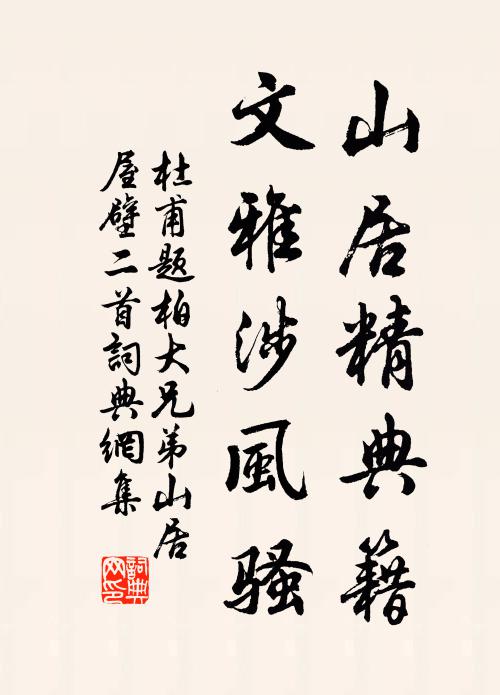 山居精典籍
文雅涉風騷
杜甫題柏大兄弟山居
屋壁二首詞典網集
詞典
网印